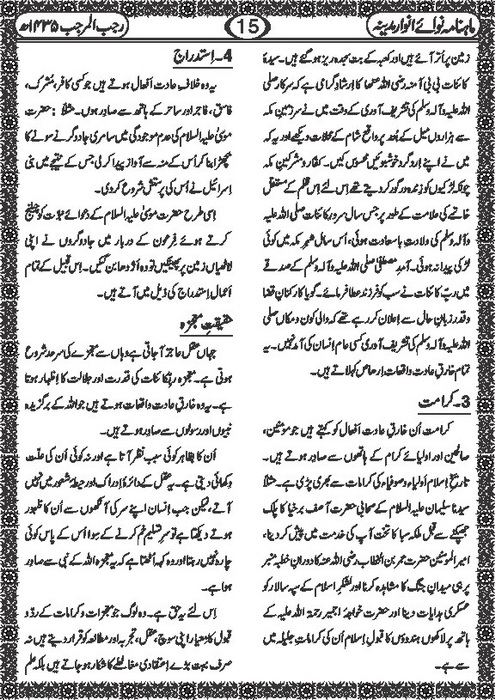 ماہنامہ نوائے انوارِ مدینہ
15
رجب المرجب ۱۴۳۵ھ
زمین پر اُتر آئے ہیں اور کعبہ کے بت سجدہ ریز ہو گئے ہیں۔ سیدۂ
کائنات بی بی آمنہ رضی اللہ عنہا کا ارشادِ گرامی ہے کہ سرکار صلی
اللہ علیہ وآلہ وسلم کی تشریف آوری کے وقت میں نے سرزمینِ مکہ
سے ہزاروں میل کے بُعد پر واقع شام کے محلات دیکھے اور یہ کہ
میں نے اپنے اردگرد خوشبوئیں محسوس کیں۔ کفار و مشرکینِ مکہ
چونکہ لڑکیوں کو زندہ درگور کر دیتے تھے اِس لئے اِس ظلم کے مستقل
خاتمے کی علامت کے طور پر جس سال سرورِ کائنات صلی اللہ علیہ
وآلہ وسلم کی ولادتِ باسعادت ہوئی، اُس سال شہرِ مکہ میں کوئی
لڑکی پیدا نہ ہوئی۔ آمدِ مصطفیٰ صلی اللہ علیہ وآلہ وسلم کے صدقے
میں ربِّ کائنات نے سب کو فرزند عطا فرمائے۔ گویا کارکنانِ قضا
و قدر زبانِ حال سے اِعلان کر رہے تھے کہ والی کون و مکاں صلی
اللہ علیہ وآلہ وسلم کی تشریف آوری کسی عام اِنسان کی آمد نہیں۔ یہ
تمام خارقِ عادت واقعات اِرہاص کہلاتے ہیں۔
3۔ کرامت
کرامت اُن خارقِ عادت اَفعال کو کہتے ہیں جو مؤمنین،
صالحین اور اولیائے کرام کے ہاتھوں سے صادر ہوتے ہیں۔
تاریخِ اِسلام اَولیاء و صوفیاء کی کرامات سے بھری پڑی ہے۔ مثلاً
سیدنا سلیمان علیہ السلام کے صحابی حضرت آصف برخیا کا پلک
جھپکنے سے قبل ملکہ سبا کا تخت آپ کی خدمت میں پیش کر دینا،
امیر المؤمنین حضرت عمر بن الخطاب رضی اللہ عنہ کا دورانِ خطبہ منبر
پر ہی میدانِ جنگ کا مشاہدہ کرنا اور لشکرِ اِسلام کے سپہ سالار کو
عسکری ہدایات دینا اور حضرت خواجہ اجمیر رحمۃ اللہ علیہ کے
ہاتھ پر لاکھوں ہندوؤں کا قبولِ اِسلام اُن کی کراماتِ جلیلہ میں
سے ہے۔
4۔ اِستدراج
یہ وہ خلافِ عادت اَفعال ہوتے ہیں جو کسی کافر، مشرک،
فاسق، فاجر اور ساحر کے ہاتھ سے صادر ہوں۔ مثلاً: حضرت
موسیٰ علیہ السلام کی عدم موجودگی میں سامری جادوگر نے سونے کا
بچھڑا بنا کر اُس کے منہ سے آواز پیدا کر لی جس کے نتیجے میں بنی
اِسرائیل نے اُس کی پرستش شروع کر دی۔
اِسی طرح حضرت موسیٰ علیہ السلام کے دعوائے نبوت کو چیلنج
کرتے ہوئے فرعون کے دربار میں جادوگروں نے اپنی
لاٹھیاں زمین پر پھینکیں تو وہ اَژدھا بن گئیں۔ اِس قبیل کے تمام
اَعمال اِستدراج کی ذیل میں آتے ہیں۔
حقیقتِ معجزہ
جہاں عقل عاجز آ جاتی ہے وہاں سے معجزے کی سرحد شروع
ہوتی ہے۔ معجزہ ربِّ کائنات کی قدرت اور جلالت کا اِظہار ہوتا
ہے۔ یہ وہ خارقِ عادت واقعات ہوتے ہیں جو اللہ کے برگزیدہ
نبیوں اور رسولوں سے صادر ہوتے ہیں۔
اُن کا بظاہر کوئی سبب نظر آتا ہے اور نہ کوئی اُن کی علّت
دکھائی دیتی ہے۔ یہ عقل کے دائرۂ اِدراک اور حیطۂ شعور میں نہیں
آتے، لیکن جب اِنسان اپنے سر کی آنکھوں سے اُن کا ظہور
ہوتے دیکھتا ہے تو سرِ تسلیم خم کرنے کے سوا اُس کے پاس کوئی
چارہ نہیں رہتا اور وہ کہہ اُٹھتا ہے کہ یہ معجزہ اللہ کے نبی سے صادر
ہوا ہے۔
اِس لئے یہ حق ہے۔ وہ لوگ جو معجزات و کرامات کے ردّ و
قبول کا معیار اپنی سوچ، عقل، تجربہ اور مطالعہ کو قرار دیتے ہیں نہ
صرف بہت بڑے اِعتقادی مغالطے کا شکار ہو جاتے ہیں بلکہ علم